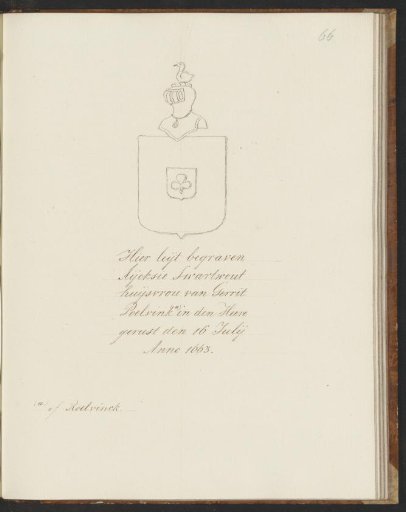 66
Hier leijt begraven
Ayeksie Swartwout
huijsvrou van Gerrit
Roelvink *) in den Heere
gerust den 16 Julij
Anno 1663.
*) of Roelvinck